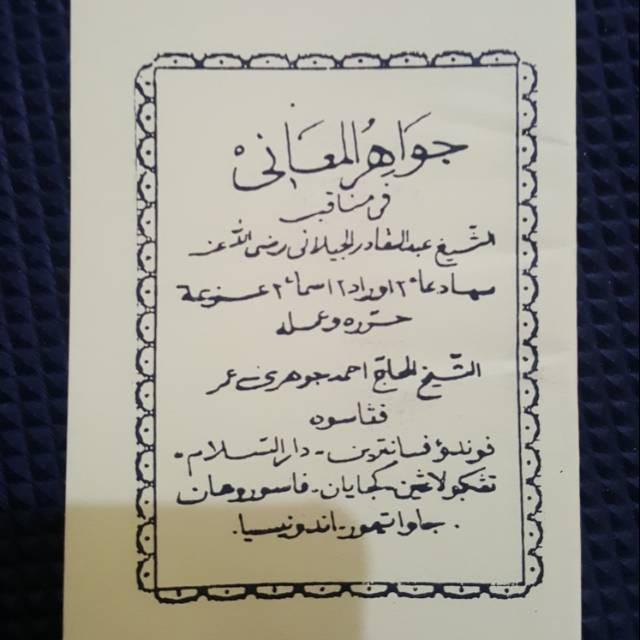 جواهر المعاني
في مناقب
الشيخ عبد القادر الجيلاني رضي الله عنه
سرتا دعاء٢ اوراد٢ اسماء٢ عزيمة
حرره وعمله
الشيخ الحاج احمد جوهري عمر
ڤڠاسوه
ڤوندؤ ڤسانترين - دار السلام -
تڠكولاڠين - كجايان - ڤاسوروهان
. جاوا تيمور - اندونيسيا .